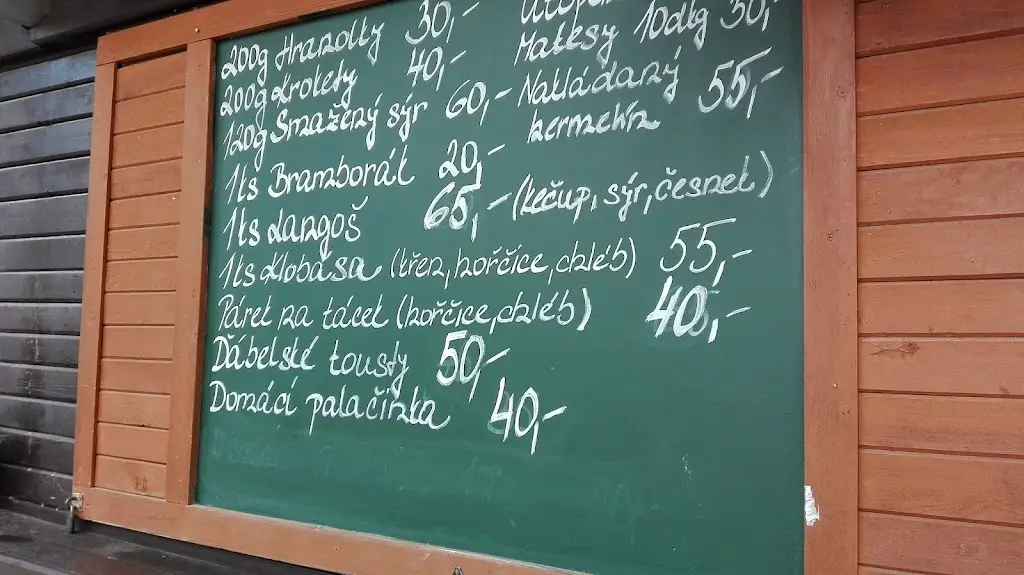 200g Hranolky 30,-
200g Krokety 40,-
120g Smažený sýr 60,-
1ks Bramborák 20,-
1ks Langoš 65,- (kečup, sýr, česnek)
1ks Klobása (křen, hořčice, chléb) 55,-
Párek na tácek (hořčice, chléb) 40,-
Ďábelské tousty 50,-
Domácí palačinka 40,-
Matesy 10dkg 30,-
Nakládaný
hermelín 55,-